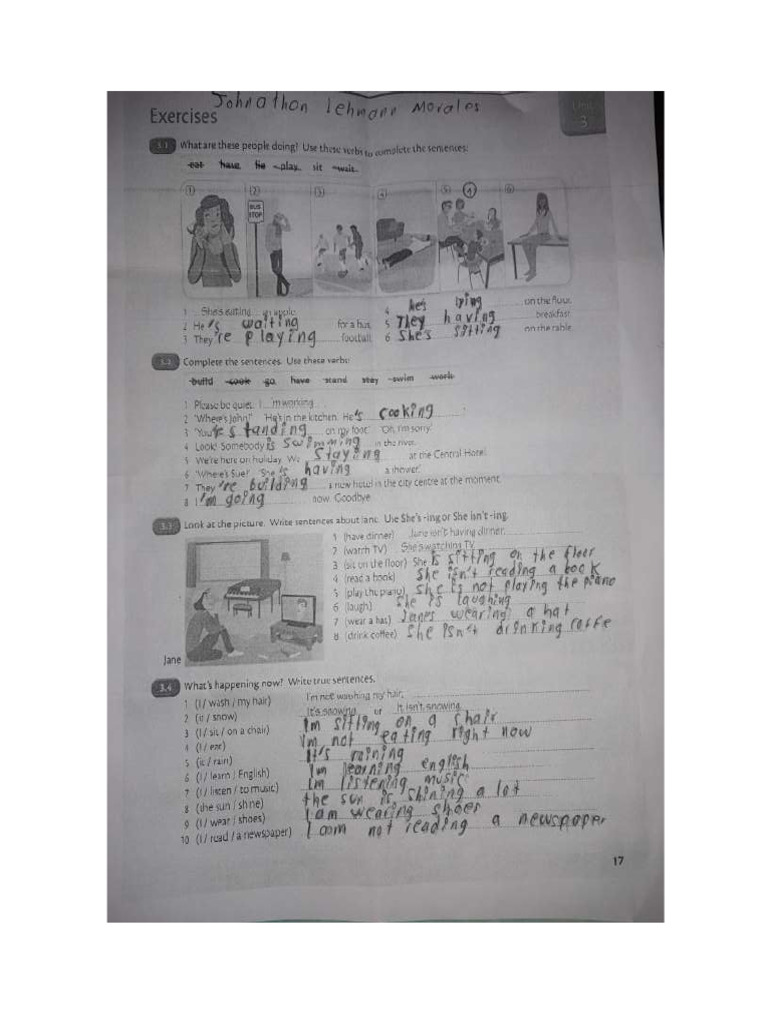 Johnathon Lehmann Morales
Exercises
Unit 3
3.1 What are these people doing? Use these verbs to complete the sentences:
eat have lie play sit wait
1 2 3 4 5 4 6
BUS STOP
1 She's eating an apple.
2 He 's waiting for a bus.
3 They 're playing football.
4 he's lying on the floor.
5 They having breakfast.
6 She's sitting on the table.
3.2 Complete the sentences. Use these verbs:
build cook go have stand stay swim work
1 Please be quiet. I 'm working .
2 'Where's John?' 'He's in the kitchen. He 's cooking
3 'You 're standing on my foot.' 'Oh, I'm sorry.'
4 Look! Somebody is swimming in the river.
5 We're here on holiday. We staying at the Central Hotel.
6 'Where's Sue?' 'She is having a shower.'
7 They 're building a new hotel in the city centre at the moment.
8 I 'm going now. Goodbye.
3.3 Look at the picture. Write sentences about Jane. Use She's -ing or She isn't -ing.
1 (have dinner) Jane isn't having dinner.
2 (watch TV) She's watching TV.
3 (sit on the floor) She is sitting on the floor
4 (read a book) She isn't reading a book
5 (play the piano) she is not playing the piano
6 (laugh) She is laughing
7 (wear a hat) Janes wearing a hat
8 (drink coffee) She isn't drinking coffe
Jane
3.4 What's happening now? Write true sentences.
1 (I / wash / my hair) I'm not washing my hair.
2 (it / snow) It's snowing. or It isn't snowing.
3 (I / sit / on a chair) Im sitting on a chair
4 (I / eat) I'm not eating right now
5 (it / rain) It's raining
6 (I / learn / English) Im learning english
7 (I / listen / to music) Im listening music
8 (the sun / shine) the sun is shining a lot
9 (I / wear / shoes) I am wearing shoes
10 (I / read / a newspaper) I am not reading a newspaper
17